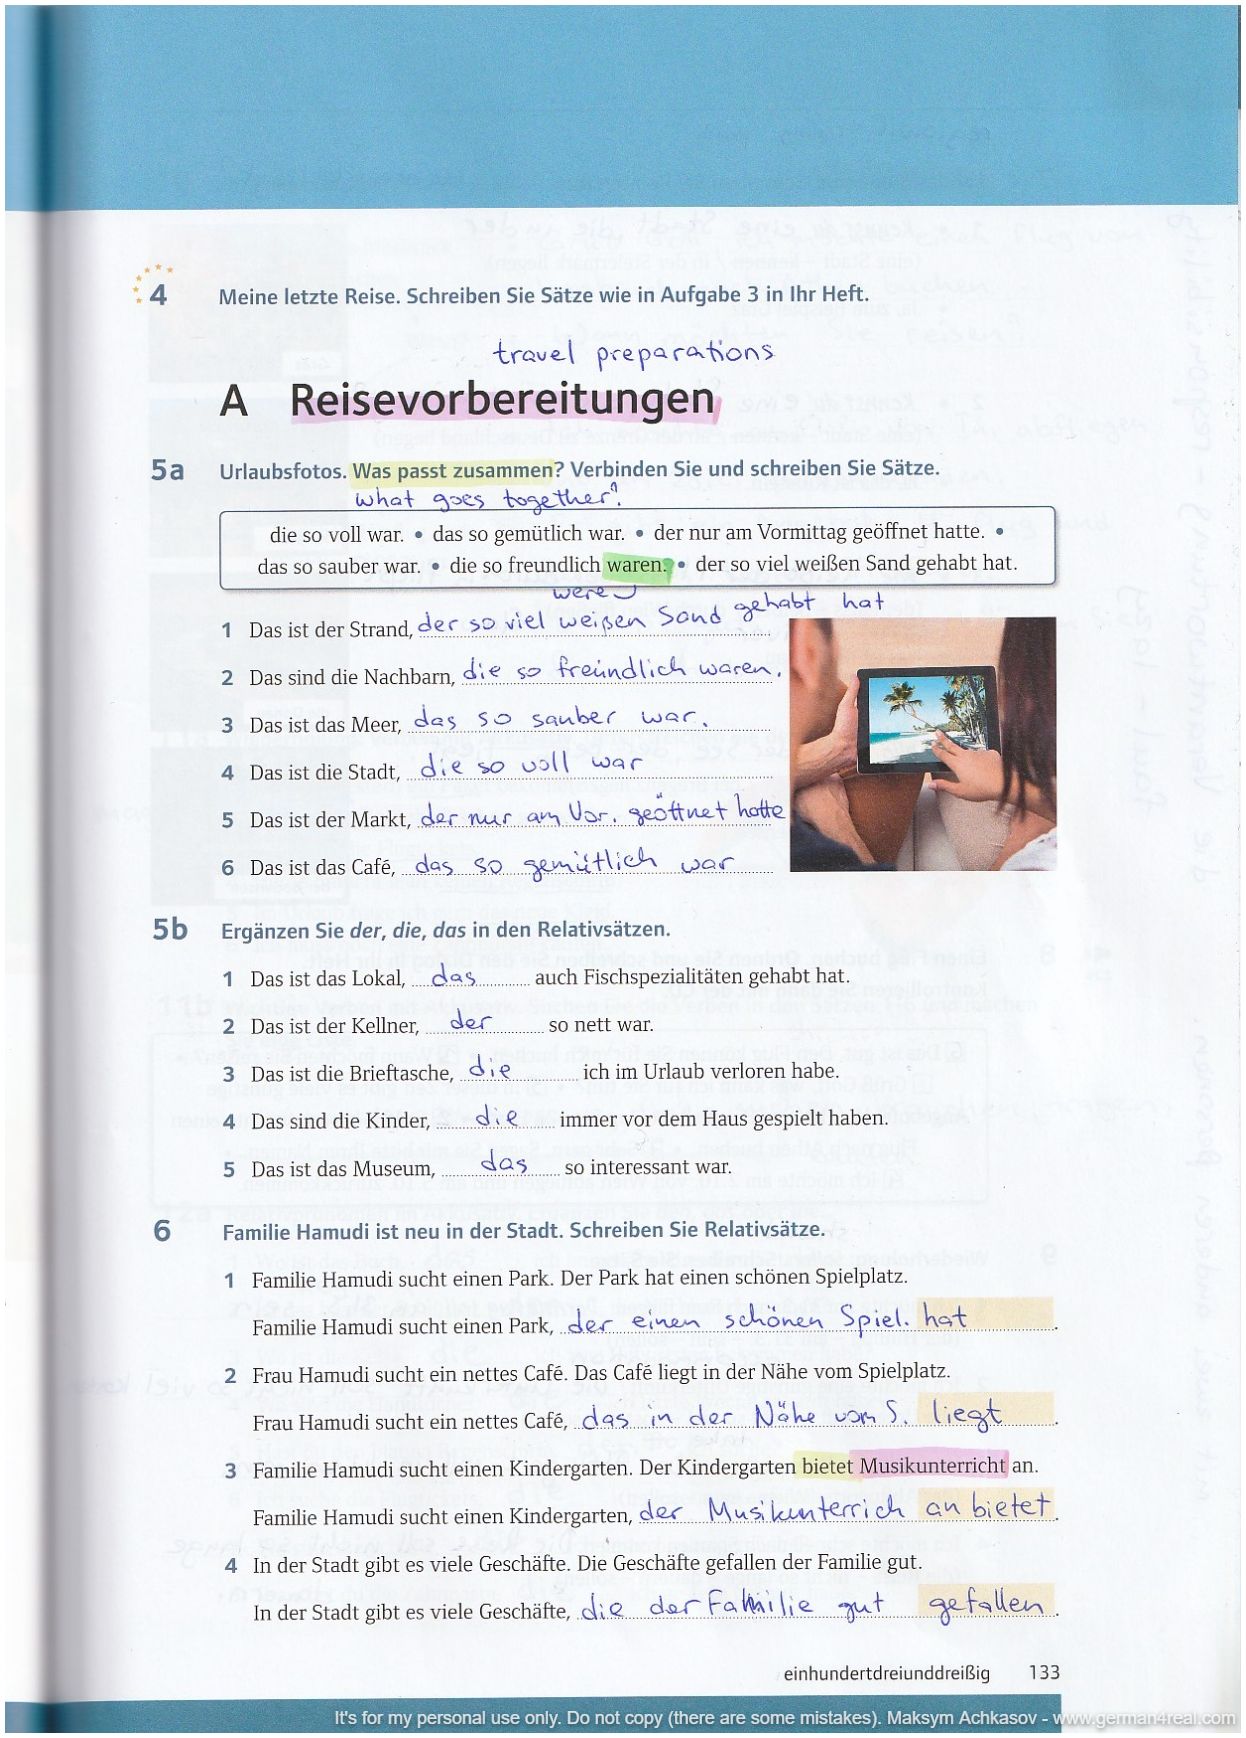 4 Meine letzte Reise. Schreiben Sie Sätze wie in Aufgabe 3 in Ihr Heft.
travel preparations
A Reisevorbereitungen
5a Urlaubsfotos. Was passt zusammen? Verbinden Sie und schreiben Sie Sätze.
what goes together?
die so voll war. • das so gemütlich war. • der nur am Vormittag geöffnet hatte. •
das so sauber war. • die so freundlich waren. • der so viel weißen Sand gehabt hat.
were
1 Das ist der Strand, der so viel weißen Sand gehabt hat
2 Das sind die Nachbarn, die so freundlich waren.
3 Das ist das Meer, das so sauber war.
4 Das ist die Stadt, die so voll war
5 Das ist der Markt, der nur am Vor. geöffnet hatte
6 Das ist das Café, das so gemütlich war
5b Ergänzen Sie der, die, das in den Relativsätzen.
1 Das ist das Lokal, das auch Fischspezialitäten gehabt hat.
2 Das ist der Kellner, der so nett war.
3 Das ist die Brieftasche, die ich im Urlaub verloren habe.
4 Das sind die Kinder, die immer vor dem Haus gespielt haben.
5 Das ist das Museum, das so interessant war.
6 Familie Hamudi ist neu in der Stadt. Schreiben Sie Relativsätze.
1 Familie Hamudi sucht einen Park. Der Park hat einen schönen Spielplatz.
Familie Hamudi sucht einen Park, der einen schönen Spiel. hat.
2 Frau Hamudi sucht ein nettes Café. Das Café liegt in der Nähe vom Spielplatz.
Frau Hamudi sucht ein nettes Café, das in der Nähe vom S. liegt.
3 Familie Hamudi sucht einen Kindergarten. Der Kindergarten bietet Musikunterricht an.
Familie Hamudi sucht einen Kindergarten, der Musikunterrich anbietet.
4 In der Stadt gibt es viele Geschäfte. Die Geschäfte gefallen der Familie gut.
In der Stadt gibt es viele Geschäfte, die der Familie gut gefallen.
einhundertdreiunddreißig 133
It's for my personal use only. Do not copy (there are some mistakes). Maksym Achkasov - www.german4real.com